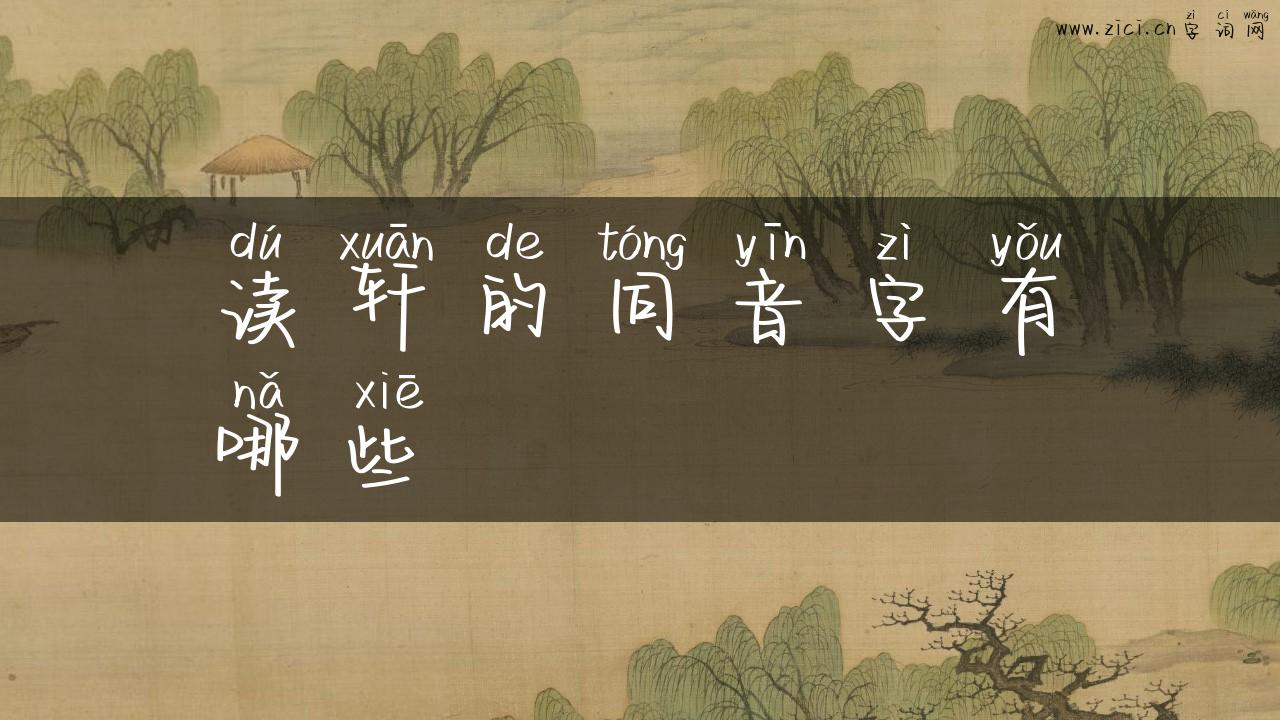 zì cí wǎng
www.zici.cn 字 词 网
dú xuān de tóng yīn zì yǒu
读 轩 的 同 音 字 有
nǎ xiē
哪 些